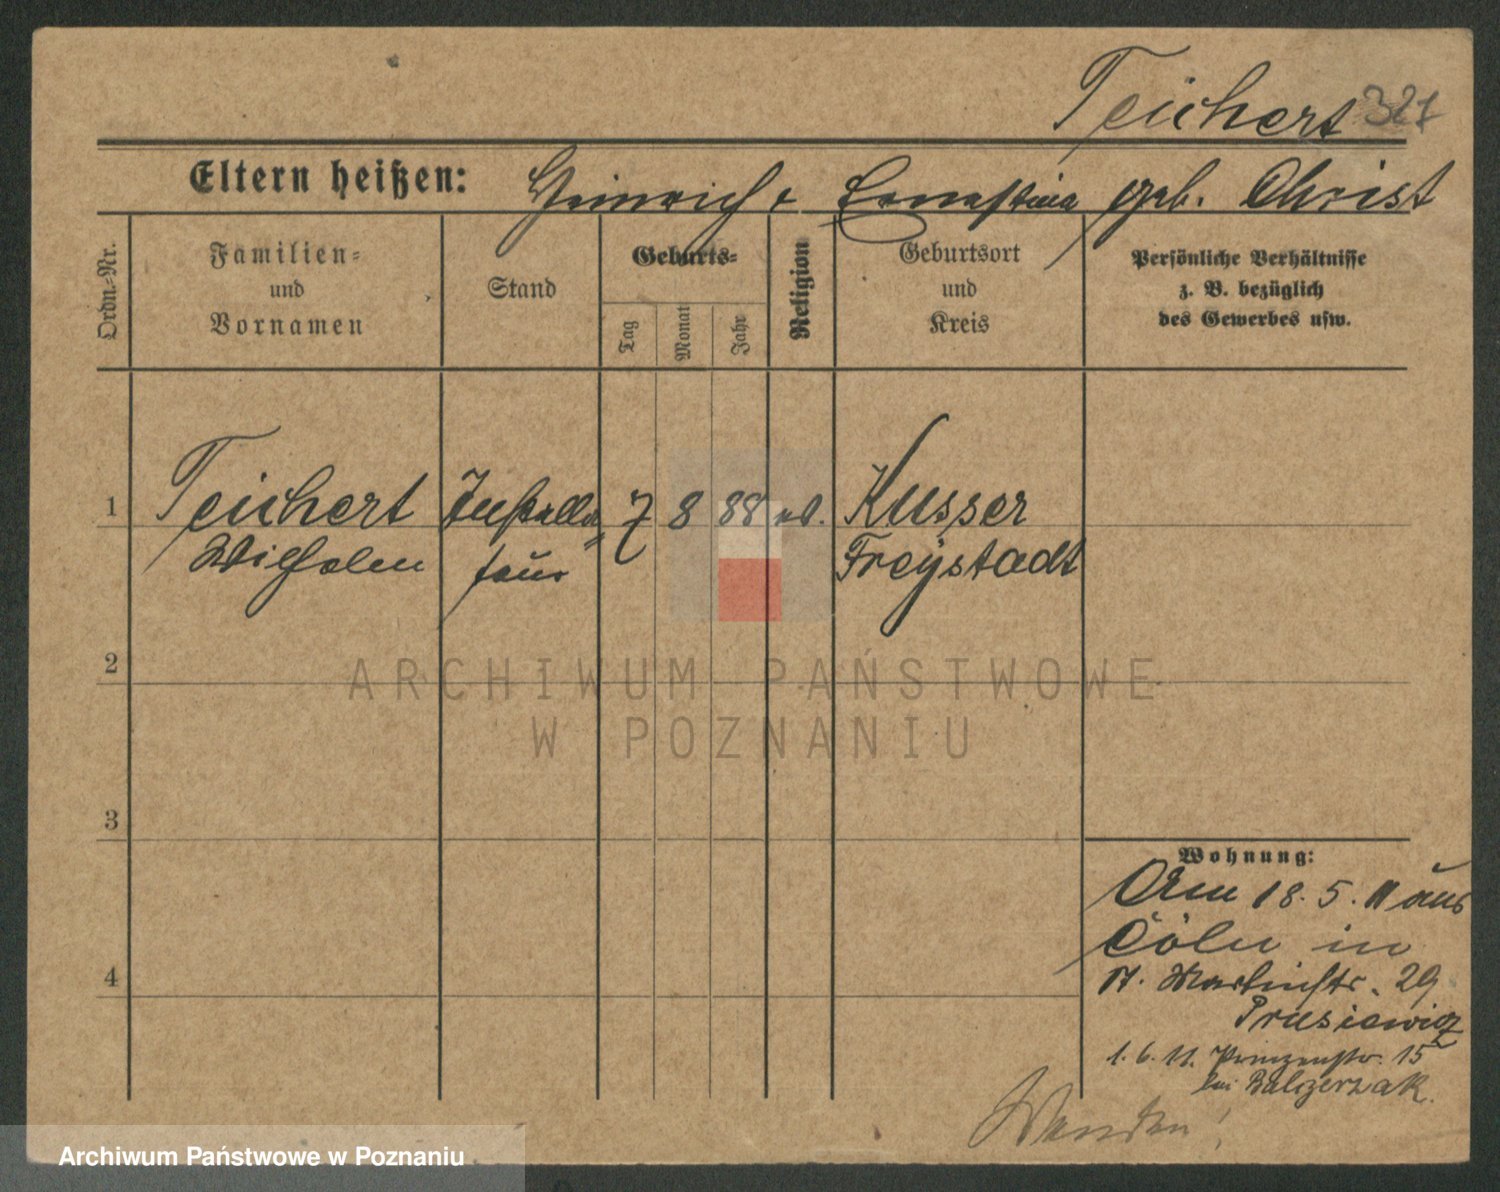 Teichert 327
Eltern heißen: Heinrich & Ernestine geb. Christ
Ordn.-Nr.
Familien-
und
Vornamen
Stand
Geburts-
Tag
Monat
Jahr
Religion
Geburtsort
und
Kreis
Persönliche Verhältnisse
z. B. bezüglich
des Gewerbes usw.
1 Teichert Installa= 7 8 88 ev. Kusser
Wilhelm teur Freystadt
2
3
4
Wohnung:
Am 18. 5. 11 aus
Cöln in
St. Martinstr. 29
Prusiewicz
1. 6. 11. Prinzenstr. 15
bei Balcerzak.
Wenden!
ARCHIWUM PAŃSTWOWE
W POZNANIU
Archiwum Państwowe w Poznaniu